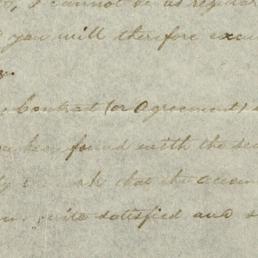 I cannot be as regular
you will therefore excu
Contract (or agreement)
been found with the
that the accou
quite satisfied and s